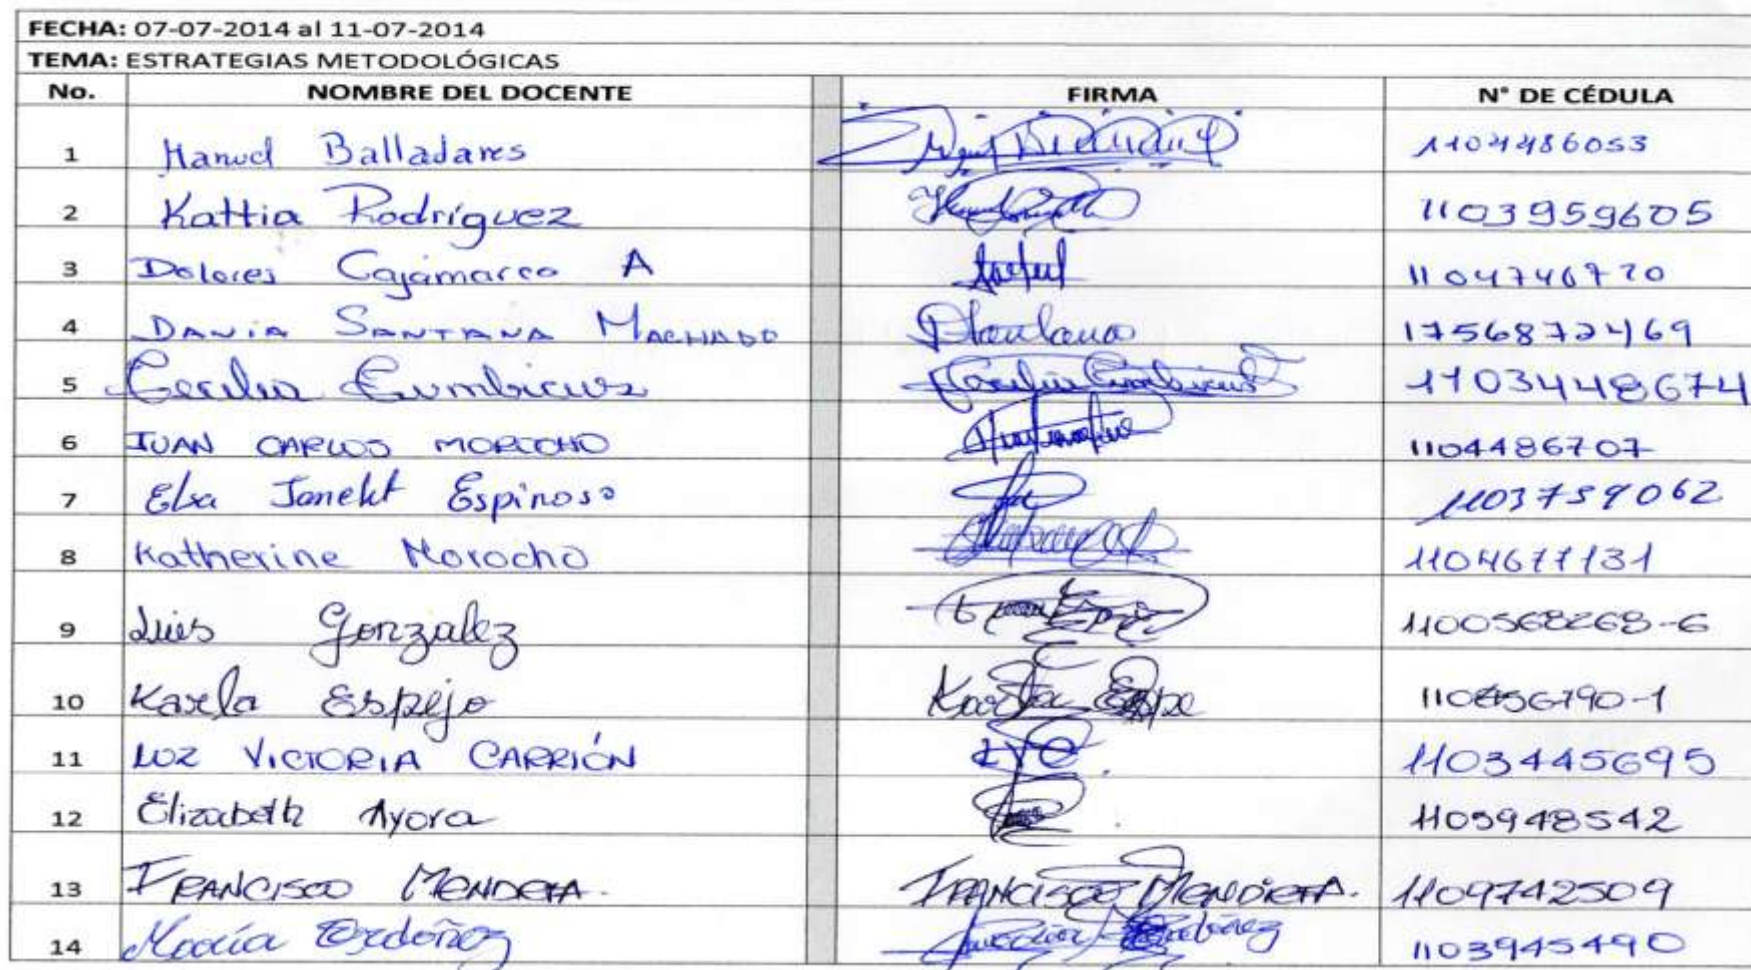 FECHA: 07-07-2014 al 11-07-2014
TEMA: ESTRATEGIAS METODOLÓGICAS
No. NOMBRE DEL DOCENTE FIRMA N° DE CÉDULA
1 Manuel Balladares 1104486053
2 Kattia Rodríguez 1103959605
3 Dolores Cajamarca A
4 DANIA SANTANA MACHADO DSantana
5 Cecilia Cumbicus Cecilia Cumbicus 1103448674
6 JUAN CARLOS MOROCHO 1104486707
7 Elsa Janeht Espinosa 1103759062
8 Katherine Morocho 1104677131
9 Luis Gonzalez
10 Karla Espejo Karla Espe
11 LUZ VICTORIA CARRIÓN LVC 1103445695
12 Elizabeth Ayora
13 FRANCISCO MENDIETA. FRANCISCO MENDIETA. 1109742509
14 María Ordóñez Ordóñez 1103945490